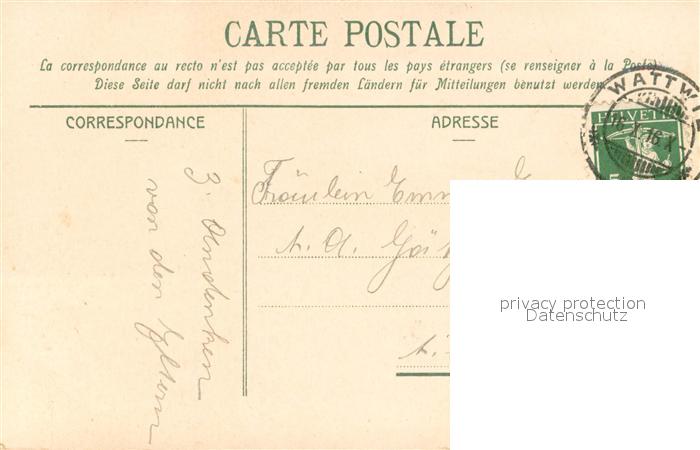 CARTE POSTALE
La correspondance au recto n'est pas acceptée par tous les pays étrangers (se renseigner à la Poste)
Diese Seite darf nicht nach allen fremden Ländern für Mitteilungen benutzt werden
CORRESPONDANCE
ADRESSE
WATTW
HELVET
16.X.16.X
3. Andenken
von den Eltern
Fräulein
privacy protection
Datenschutz